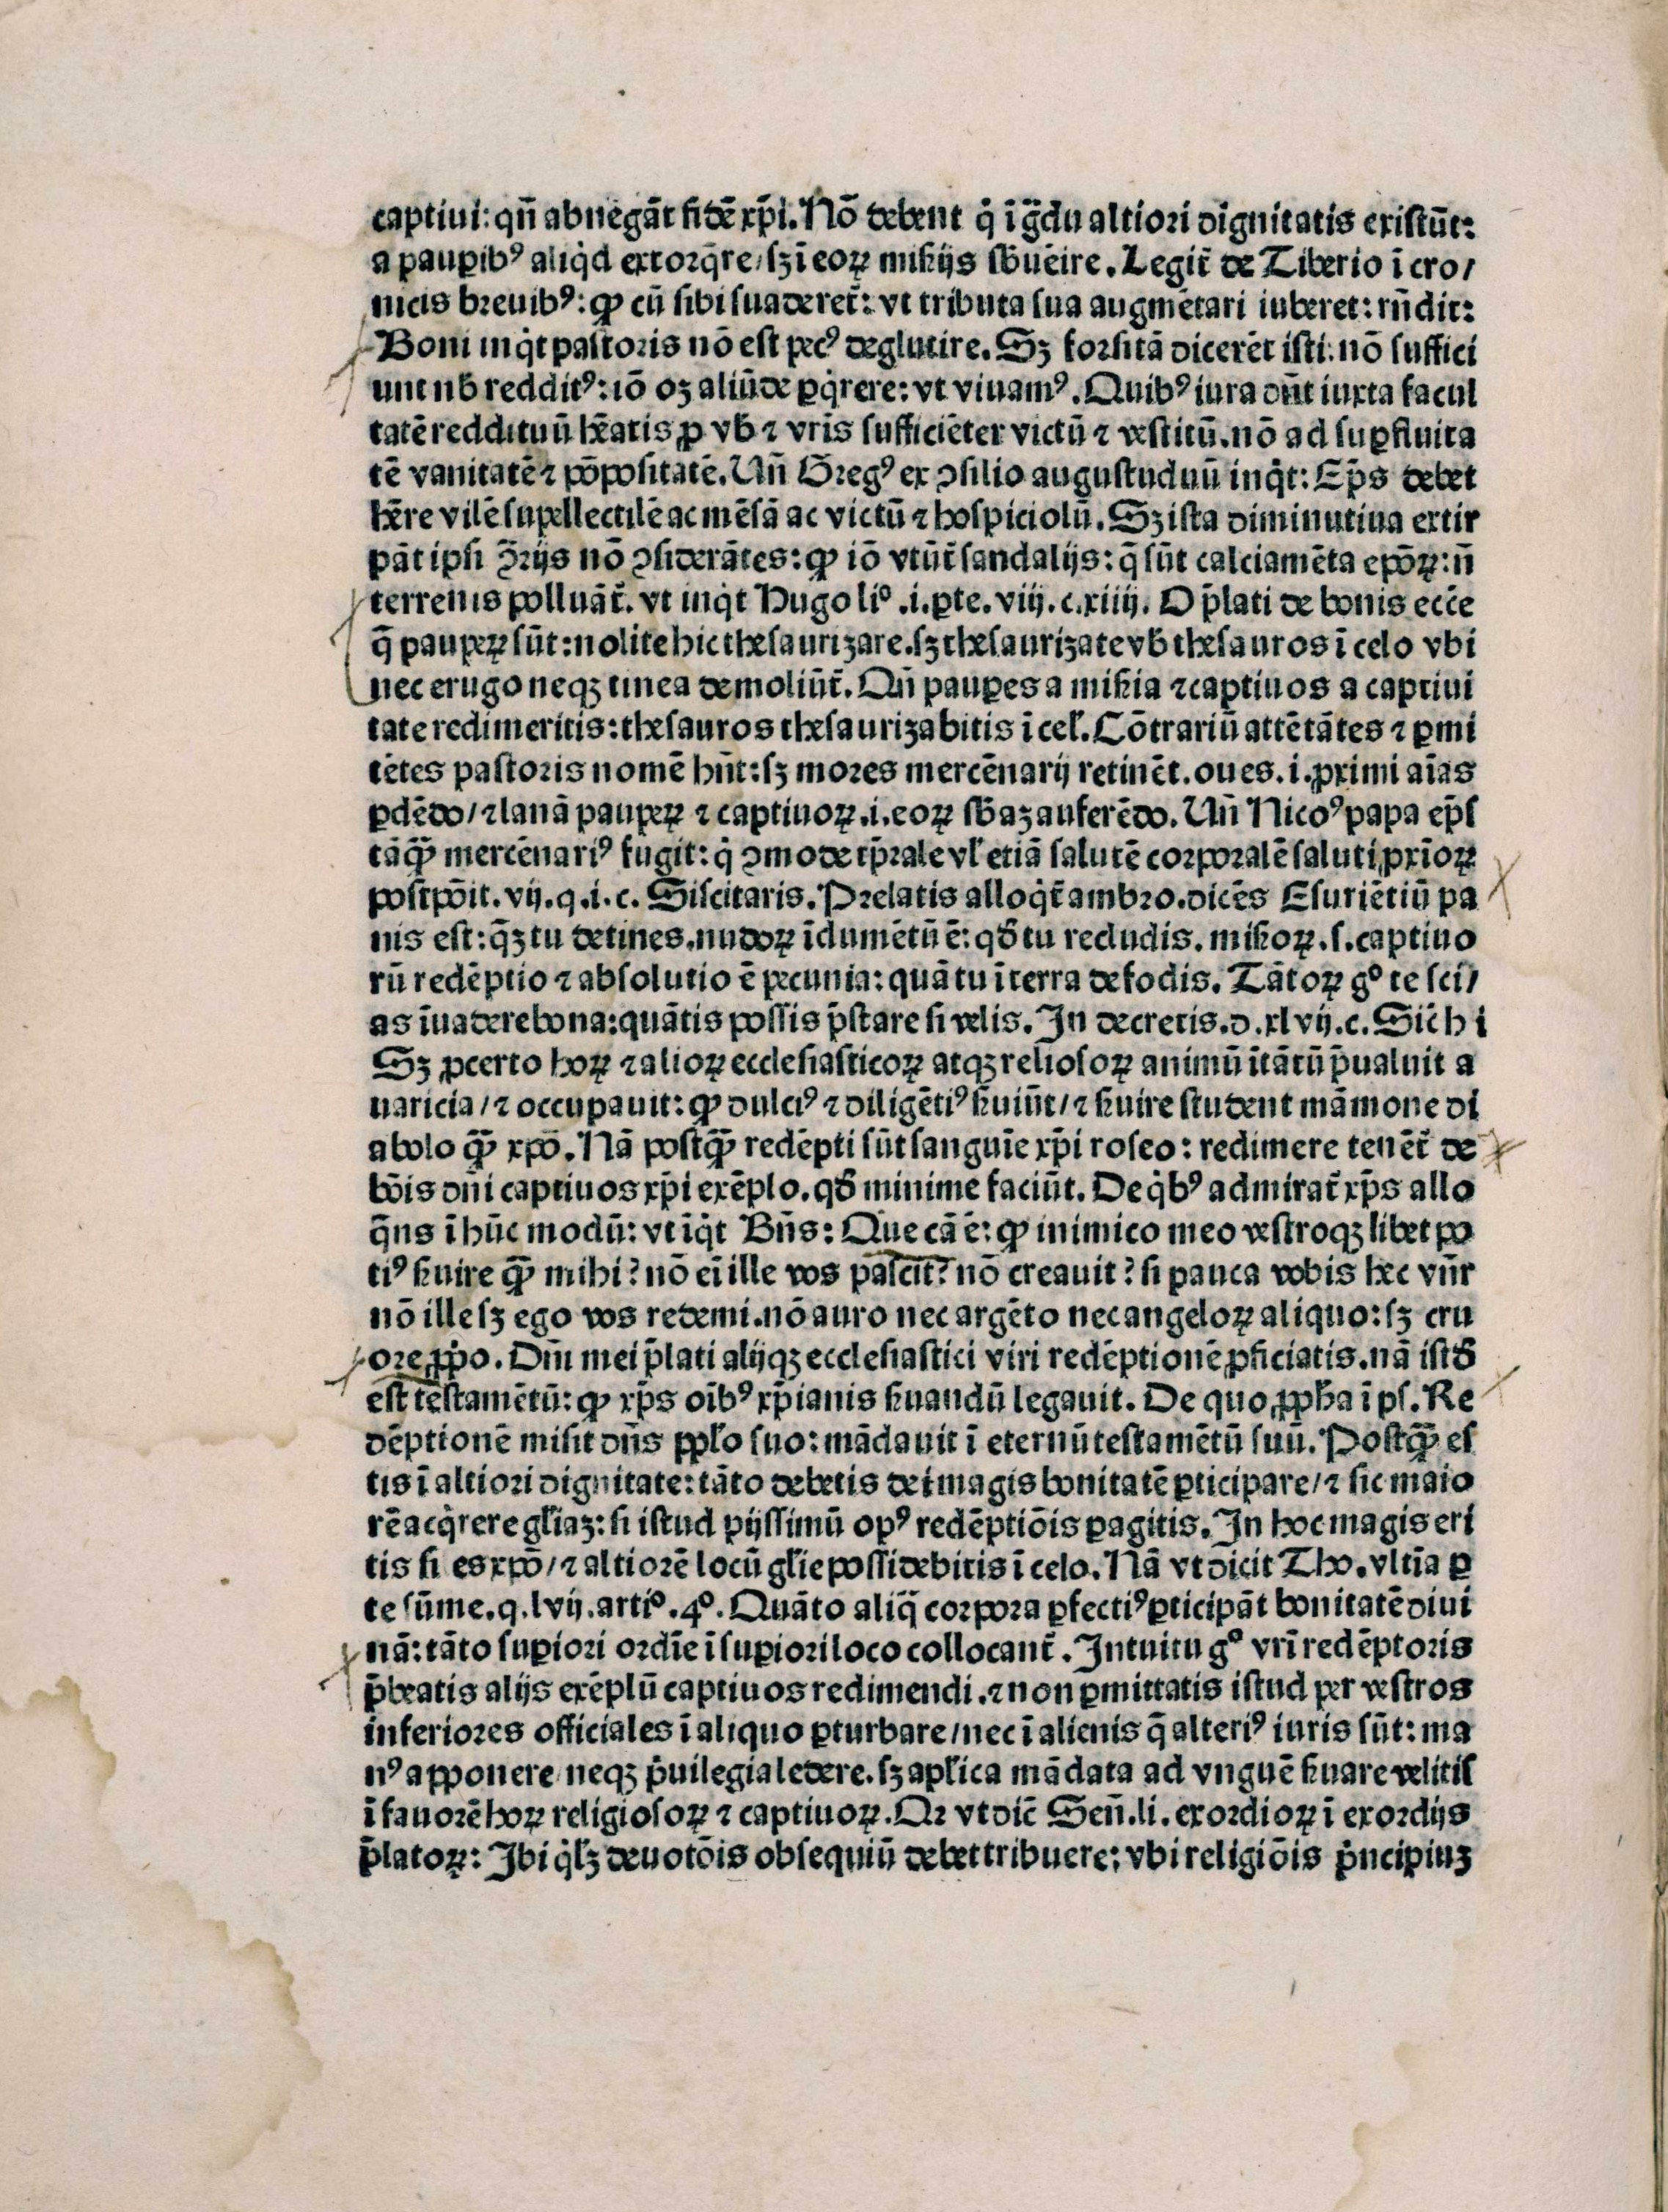 captiui: qn̄ abnegāt fidē xp̄i. Nō debent q̇ ī ḡdu altiori dignitatis existūt:
a pauꝑibꝰ aliq̇d extorq̄re/ sꝫ ī eoꝝ miẜijs sb̄uēire. Legit̄ de Tiberio ī cro/
nicis breuibꝰ: ꝙ cū sibi suaderet̄: vt tributa sua augmētari iuberet: rn̄dit:
Boni inq̇t pastoris nō est pecꝰ deglutire. Sꝫ forsitā dicerēt isti: nō suffici
unt nb̄ redditꝰ: iō oꝫ aliūde ꝑq̇rere: vt viuamꝰ. Quibꝰ iura dn̄t iuxta facul
tatē reddituū hēatis ꝓ vb̄ ⁊ vr̄is sufficiēter victū ⁊ vestitū. nō ad suꝑfluita
tē vanitatē ⁊ pōpositatē. Un̄ Gregꝰ ex ꝯsilio augustuduū inq̇t: Ep̄s debet
hēre vilē supellectilē ac mēsā ac victū ⁊ hospiciolū. Sꝫ ista diminutiua extir
pāt ipsi ꝯ̄rijs nō ꝯsiderātes: ꝙ iō vtūt̄ sandalijs: q̄ sūt calciamēta epōꝝ: n̄
terrenis polluāt̄. vt inq̇t Hugo liº .i. ꝑte. viij. c. xiiij. O p̄lati de bonis ecc̄e
q̄ pauꝑeꝝ sūt: nolite hic thesaurizare. sꝫ thesaurizate vb̄ thesauros ī celo vbi
nec erugo neqꝫ tinea demoliūt̄. Qn̄ pauꝑes a miẜia ⁊ captiuos a captiui
tate redimeritis: thesauros thesaurizabitis ī cel̄. Cōtrariū attētātes ⁊ ꝑmi
tētes pastoris nomē hn̄t: sꝫ mores mercēnarij retinēt. oues. i. ꝓximi aīas
ꝑdēdo/ ⁊ lanā pauꝑeꝝ ⁊ captiuoꝝ. i. eoꝝ sb̄aꝫ auferēdo. Un̄ Nicoꝰ papa ep̄s
tāꝙ̄ mercēnariꝰ fugit: q̇ ꝯmode tp̄rale vl̄ etiā salutē corporalē saluti ꝓxīoꝝ
postpōit. vij. q. i. c. Siscitaris. Prelatis alloq̇t̄ ambro. dicēs Esuriētiū pa
nis est: q̄ꝫ tu detines. nudoꝝ īdumētū ē: qð tu recludis. miẜoꝝ. s. captiuo
rū redēptio ⁊ absolutio ē pecunia: quā tu ī terra defodis. Tātoꝝ gº te sci/
as īuadere bona: quātis possis p̄stare si velis. In decretis. d. xlvij. c. Sic̄ hi
Sꝫ ꝓcerto hoꝝ ⁊ alioꝝ ecclesiasticoꝝ atqꝫ reliosoꝝ animū ītātū p̄ualuit a
uaricia/ ⁊ occupauit: ꝙ dulciꝰ ⁊ diligētiꝰ ẜuiūt/ ⁊ ẜuire student māmone di
abolo ꝙ̄ xpō. Nā postꝙ̄ redēpti sūt sanguīe xp̄i roseo: redimere tenēt̄ de
bōis dn̄i captiuos xp̄i exēplo. qð minime faciūt. De q̇bꝰ admirat̄ xp̄s allo
q̄ns ī hūc modū: vt īq̇t Bn̄s: Que cā ē: ꝙ inimico meo vestroqꝫ libet po
tiꝰ ẜuire ꝙ̄ mihi? nō eī ille vos pascit? nō creauit? si pauca vobis hec vn̄r
nō ille sꝫ ego vos redemi. nō auro nec argēto nec angeloꝝ aliquo: sꝫ cru
ore ꝓp̄o. Dn̄i mei p̄lati alijqꝫ ecclesiastici viri redēptionē ꝓficiatis. nā istð
est testamētū: ꝙ xp̄s oībꝰ xp̄ianis ẜuandū legauit. De quo ꝓph̄a ī ps. Re
dēptionē misit dn̄s ppl̄o suo: mādauit ī eternū testamētū suū. Postꝙ̄ es
tis ī altiori dignitate: tāto debetis dei magis bonitatē ꝑticipare/ ⁊ sic maio
rē acq̇rere gl̄iaꝫ: si istud pijssimū opꝰ redēptiōis ꝑagitis. In hoc magis eri
tis si es xpō/ ⁊ altiorē locū gl̄ie possidebitis ī celo. Nā vt dicit Tho. vltīa ꝑ
te sūme. q. lvij. artiº. 4º. Quāto aliq̄ corpora ꝑfectiꝰ ꝑticipāt bonitatē diui
nā: tāto suꝑiori ordīe ī suꝑiori loco collocant̄. Intuitu gº vr̄i redēptoris
p̄beatis alijs exēplū captiuos redimendi. ⁊ non ꝑmittatis istud per vestros
inferiores officiales ī aliquo ꝑturbare/ nec ī alienis q̄ alteriꝰ iuris sūt: ma
nꝰ apponere/ neqꝫ ṗuilegia ledere. sꝫ apl̄ica mādata ad vnguē ẜuare velitis
ī fauorē hoꝝ religiosoꝝ ⁊ captiuoꝝ. Qꝛ vt dic̄ Sen̄. li. exordioꝝ ī exordijs
p̄latoꝝ: Ibi q̇lꝫ deuotōis obsequiū debet tribuere: vbi religiōis ṗncipiuꝫ